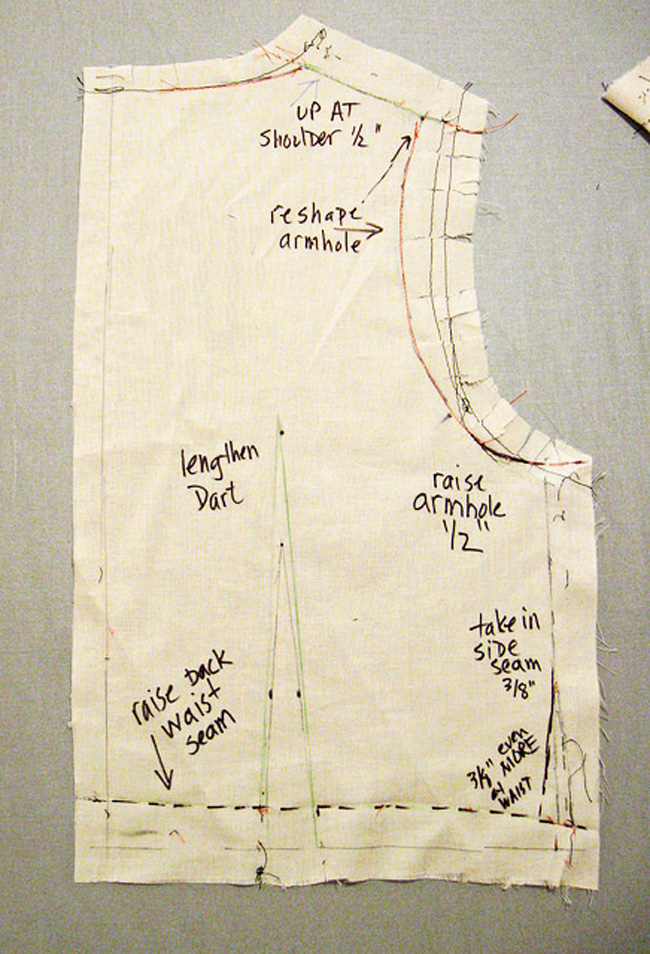 UP AT
shoulder 1/2"
reshape
armhole
lengthen
Dart
raise
armhole
1/2"
take in
side
seam
3/8"
raise back
waist
seam
3/8" even
MORE
at
WAIST